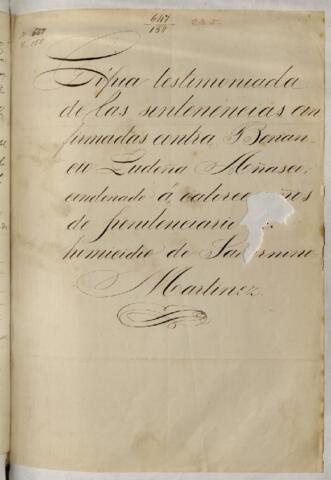 647
150
Copia testimoniada
de las sentenencias con
firmadas contra Benan
cio Ludeña Miñaso,
condenado á catorce años
de penitenciaria
homicidio de Saturnino
Martinez.